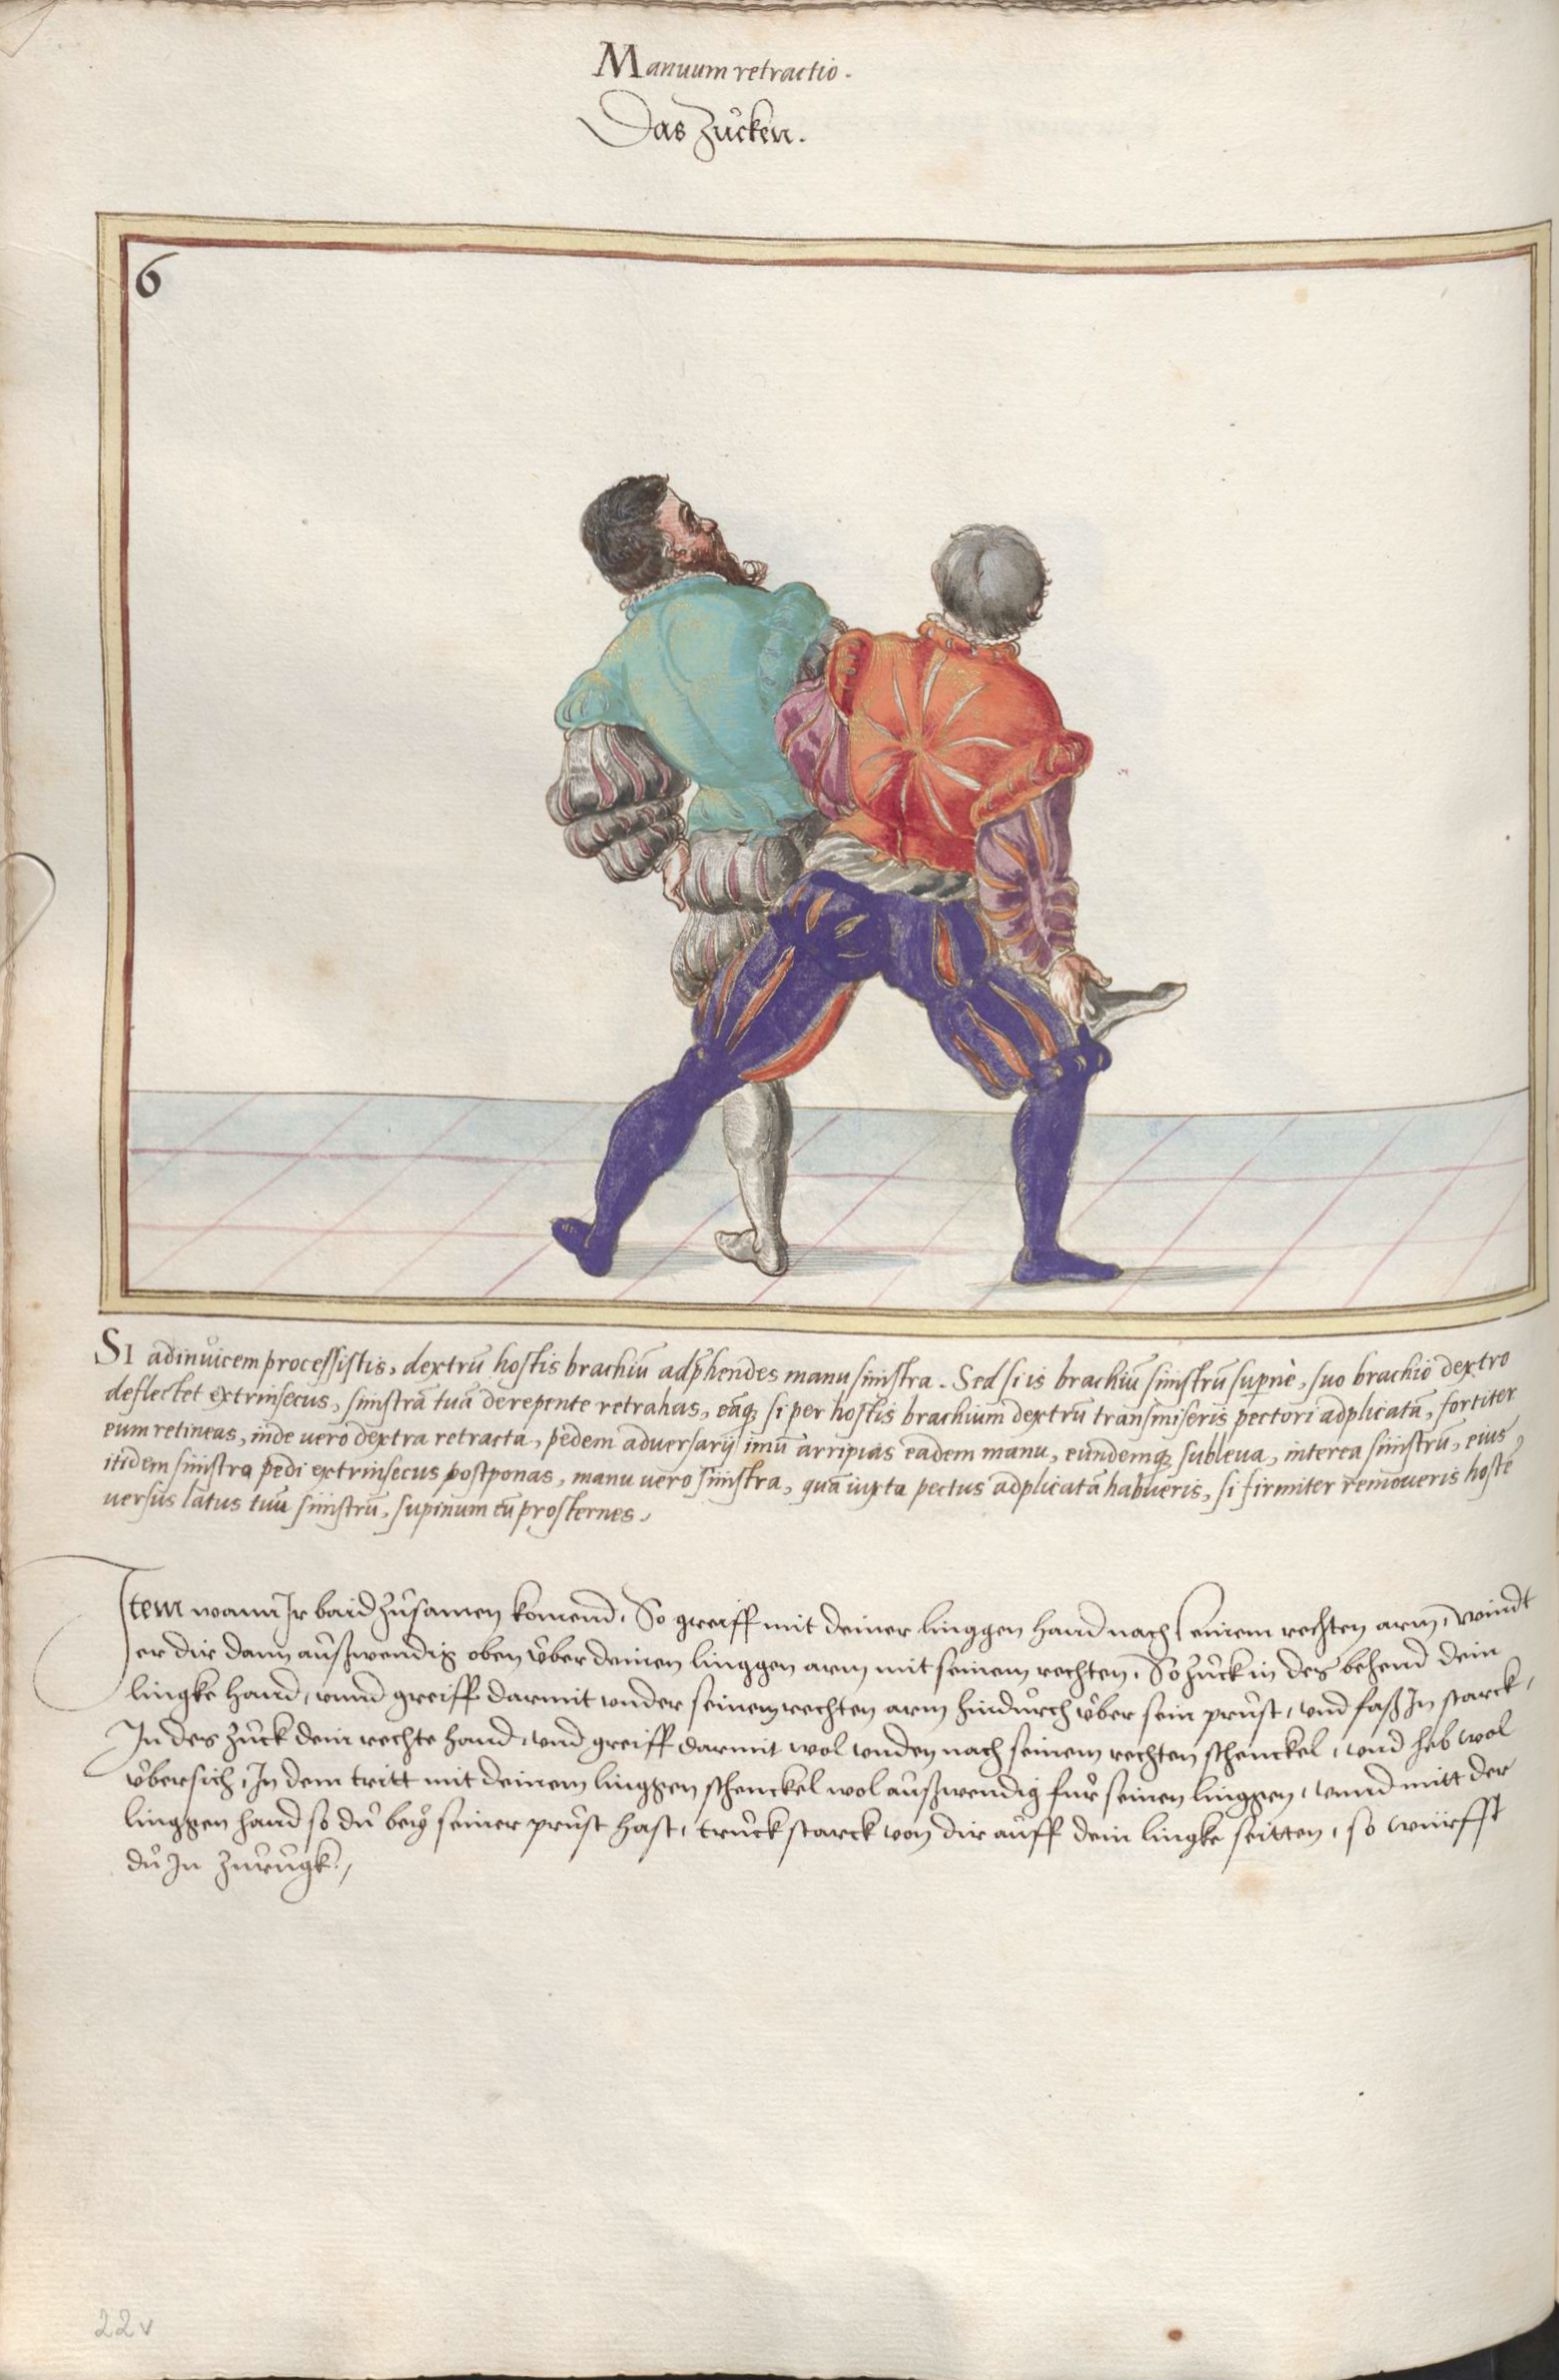 Manuum retractio.
Das Zucken.
6
SI adinuicem processistis, dextrũ hostis brachiũ adp̃hendes manu sinistra. Sed si is brachiũ sinistrũ supnè, suo brachio dextro
deflectet extrinsecus, sinistrã tuã derepente retrahas, eãq; si per hostis brachium dextrũ transmiseris pectori adplicatã, fortiter
eum retineas, inde vero dextra retracta, pedem adversarij imũ arripias eadem manu, eundemq; subleva, interea sinistrũ, eius
itidem sinistro pedi extrinsecus postponas, manu vero sinistra, quã iuxta pectus adplicatã habueris, si firmiter removeris hostẽ
versus latus tuũ sinistrũ, supinum eũ prosternes.
Item wann Ir baid zůsamen komend, So greiff mit deiner linggen hand nach seinem rechten arm, windt
er dir dann außwendig oben über deinen linggen arm mit seinem rechten, So zuck in des behend dein
lingke hand, unnd greiff darmit under seinem rechten arm hindurch über sein prust, und faß In starck,
In des zuck dein rechte hand, und greiff darmit wol unden nach seinem rechten schenckel, und heb wol
übersich, In dem tritt mit deinem linggen schenckel wol außwendig für seinen linggen, unnd mitt der
linggen hand so du bey seiner prust hast, truck starck von dir auff dein lingke seitten, so würfft
du In zurugk,
22v